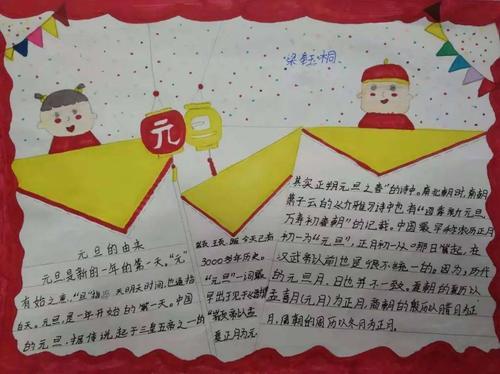 梁钰桐
元
旦
元旦的由来
元旦是新的一年的第一天。"元"
有始之意,"旦"指 天明天时间,也通指
白天。元旦,是一年开始的第一天。中国
的元旦,据传说起于三皇五帝之一的
今已有
3000多年历史。
"元旦"一词最
早出于
夏正月为元
其实正朔元旦之春"的诗中。南北朝时,南朝
萧子云的《介雅》诗中也有"四季新元旦,
万寿初春朝"的记载。中国最早称农历正月
初一为"元旦",正月初一从哪日算起,在
汉武帝以前也是很不统一的。因为,历代
的元旦月、日也并不一致。夏朝的夏历以
孟喜月(元月)为正月,商朝的殷历以腊月为正
月,周朝的周历以冬月为正月。